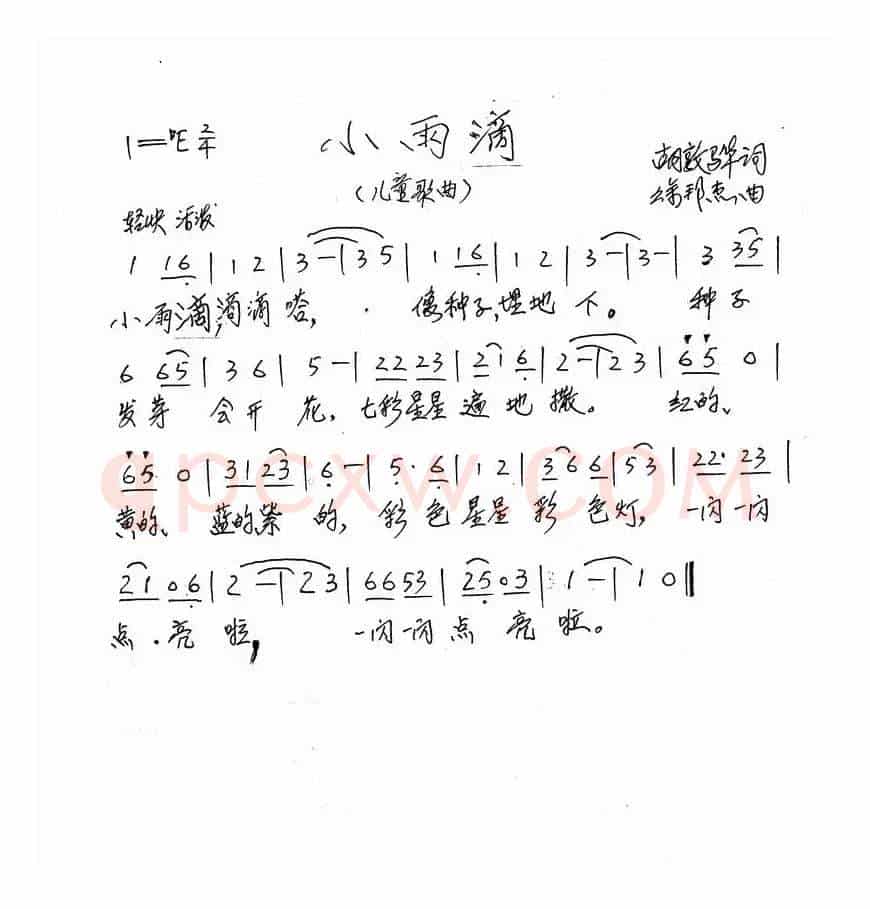 1=♭E 2/4
小雨滴
(儿童歌曲)
胡敦骅词
徐邦杰曲
轻快 活泼
1 16 | 1 2 | 3 - | 3 5 | 1 16 | 1 2 | 3 - | 3 - | 3 35 |
小雨滴,滴滴嗒, 像种子,埋地下。 种子
6 65 | 3 6 | 5 - | 22 23 | 21 6 | 2 - | 2 3 | 65 0 |
发芽 会开 花,七彩星星遍地撒。 红的、
65 0 | 31 23 | 6 - | 5 · 6 | 1 2 | 36 6 | 53 | 22· 23 |
黄的、蓝的紫的,彩色星星彩色灯,一闪一闪
21 06 | 2 - | 2 3 | 66 53 | 25 03 | 1 - | 1 0 ‖
点·亮啦, 一闪一闪点亮啦。
qpcxw.com